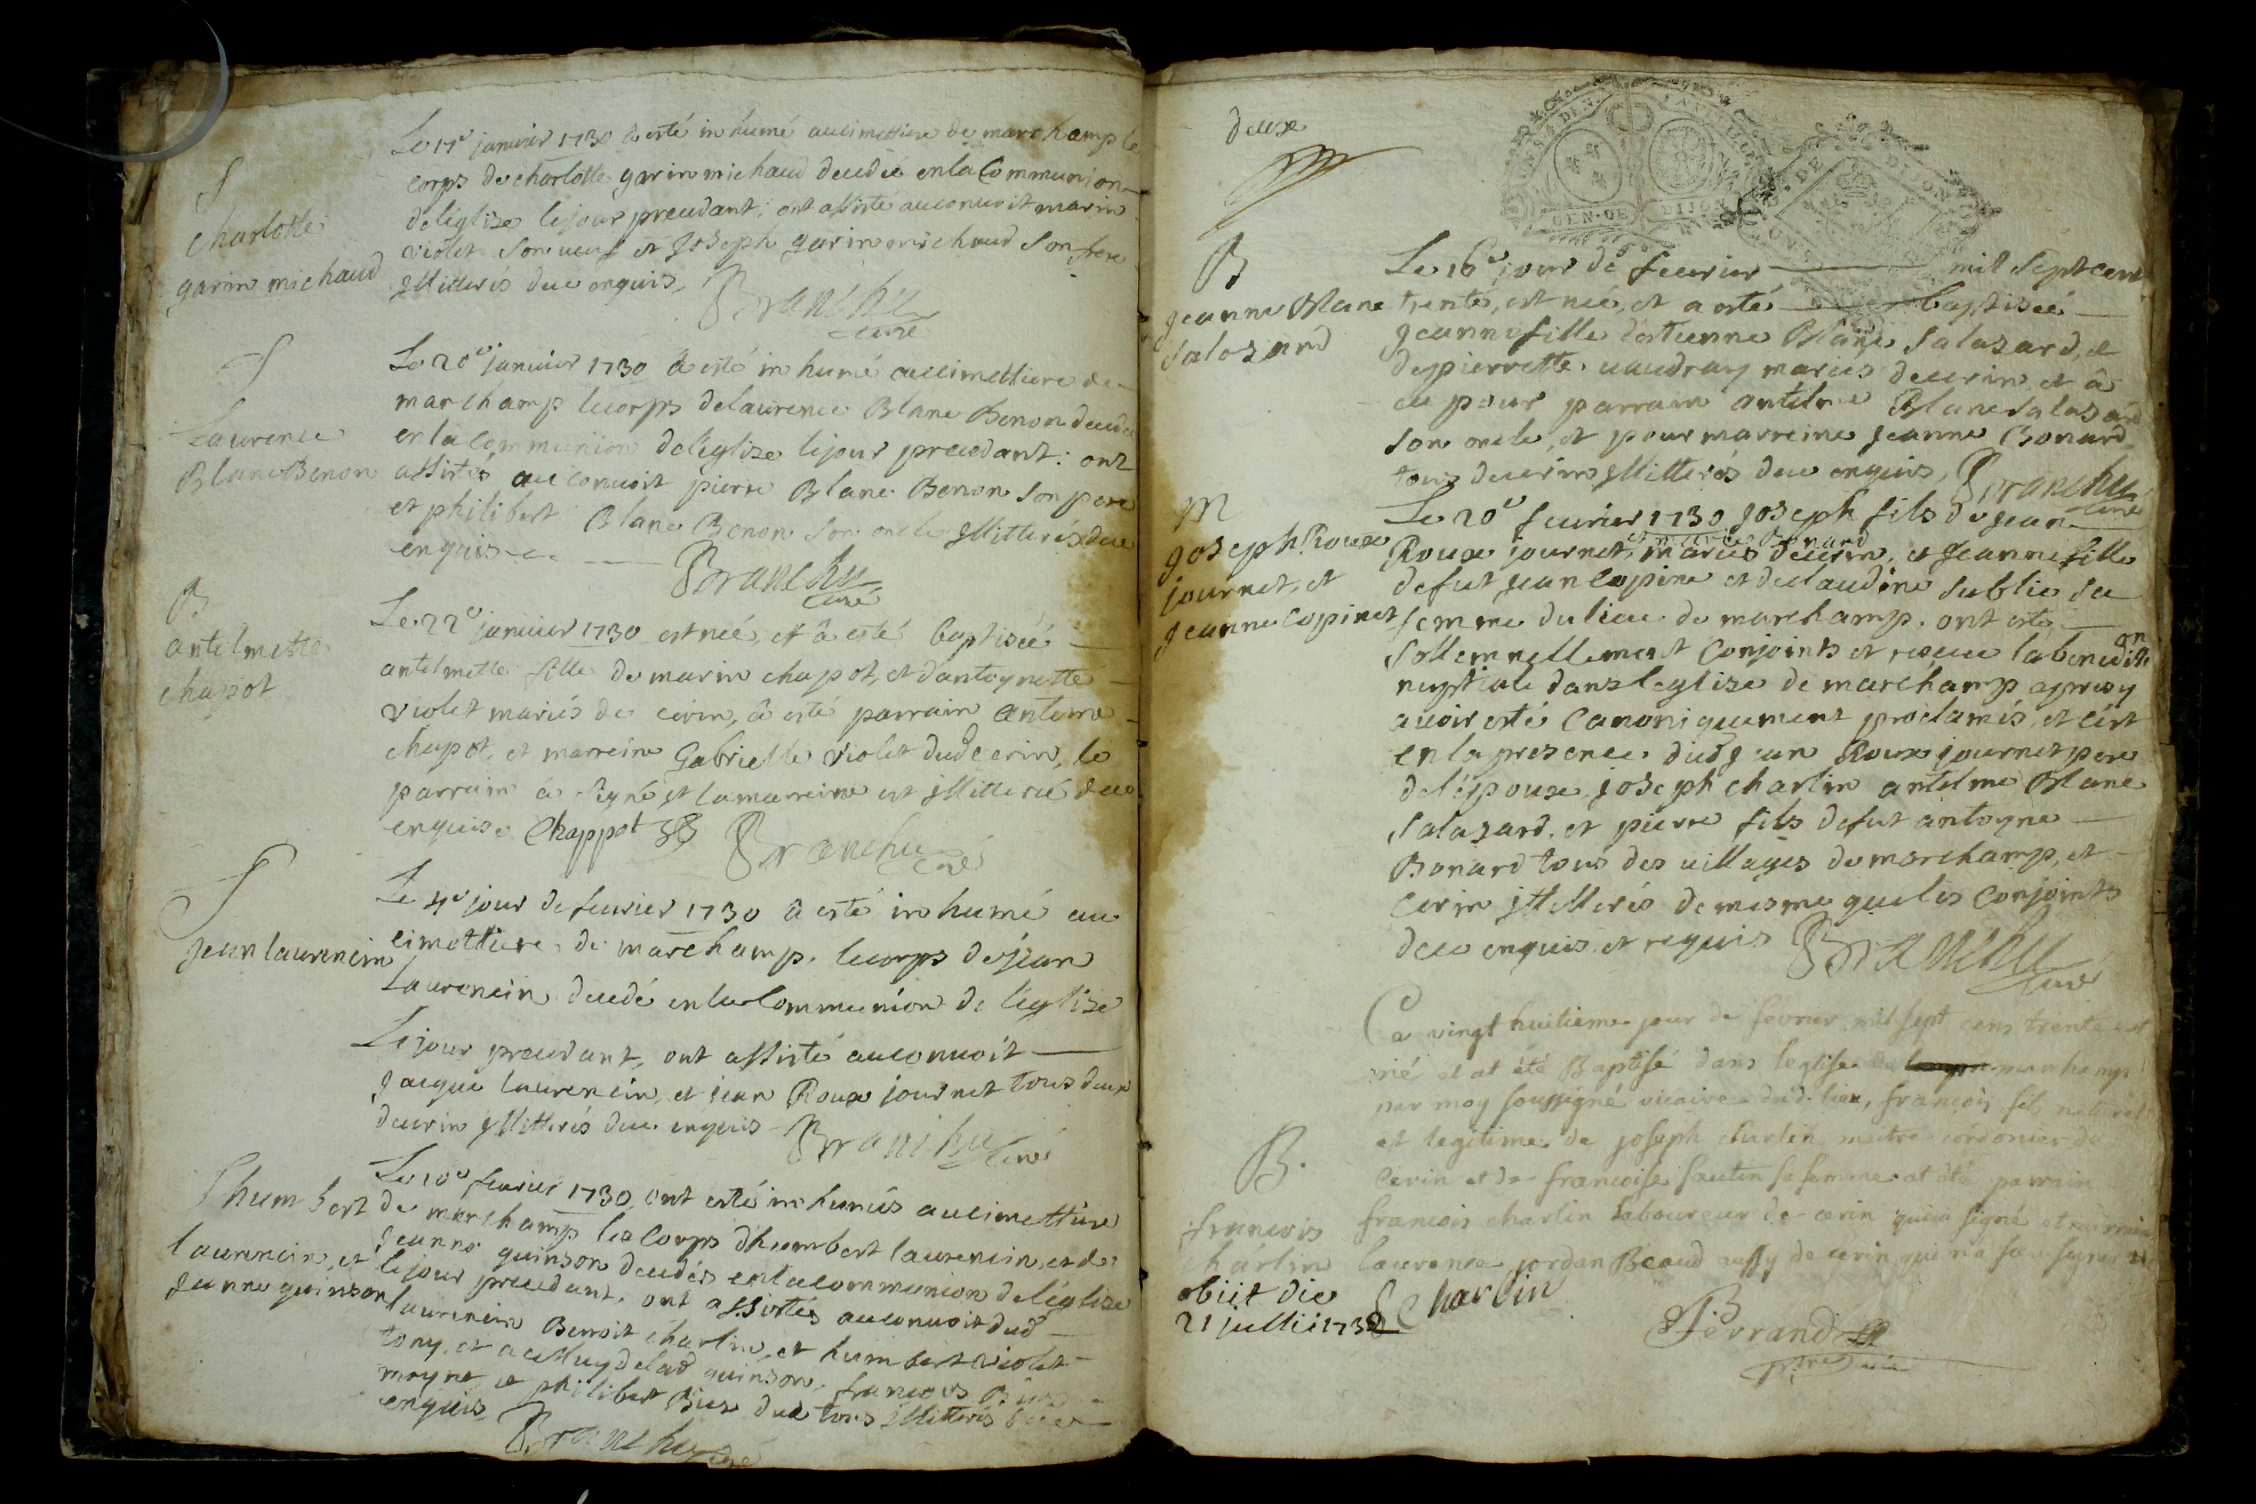 S
charlotte
garin michaud
Le 17e janvier 1730 a esté inhumé au cimettiere de marchamp le
corps de charlotte garin michaud decedée en la Communion
de leglize le jour precedant; ont assisté au convoit marin
violet son veuf et Joseph garin michaud son frere
illitterés de ce enquis, Branchu
curé
S
Laurence
Blanc Benon
Le 20e janvier 1730 a esté inhumé au cimettiere de
marchamp le corps de laurence Blanc Benon decedée
en la communion de leglize le jour precedant: ont
assistés au convoit pierre Blanc Benon son pere
et philibert Blanc Benon son oncle illitterés de ce
enquis Branchu
curé
B
antelmette
chapot
Le 22e janvier 1730 est née, et â esté baptisée
antelmette fille de marin chapot, et dantoynette
violet mariés de cerin, â esté parrain antome
chapot, et marreine Gabrielle violet dud cerin, le
parrain â signé et la marreine est illitteré de ce
enquise Chappot Branchu
curé
S
Jean laurencin
Le 4e jour de fevrier 1730 â esté inhumé au
cimettiere de marchamp le corps de jean
Laurencin decedé en la Communion de leglize
Le jour precedant, ont assisté au convoit
Jacque laurencin, et jean Roux journet tous deux
de cerin illitterés de ce enquis Branchu
curé
S humbert
laurencin, et
Jeanne quinson
Le 10e fevrier 1730 ont esté inhumés au cimettiere
de marchamp les Corps dhumbert laurencin, et de
Jeanne quinson decedés en la communion de léglize
le jour precedant. ont assistés au convoit dud
laurencin Benoit charlin, et humbert violet
tony, et a celluy de lad quinson, francois Biez
moyne et philibert Biez dud tous illitterés de ce
enquis Branchu
curé
deux
B
Jeanne Blanc
Salasard
Le 16e jour de fevrier mil sept cent
trente, est née, et a esté baptisée
Jeanne fille destienne Blanc Salasard, et
de pierrette vaudray mariés de cerin et â
eu pour parrain antelme Blanc Salasard
son oncle, et pour marreine Jeanne Bonard
tous de cerin illitterés de ce enquis, Branchu
curé
M
Joseph Roux
journet, et
Jeanne Copinet
Le 20e fevrier 1730 Joseph fils de jean
et marie Bonard
Roux journet, mariés de cerin, et Jeanne fille
de fut jean Copine et de claudine Sublie sa
femme du lieu de marchamp. ont esté
sollemnellement Conjoints et receu la benediction
nuptiale dans leglize de marchamp apres y
avoir esté Canoniquement proclamés, et cest
en la presence dud jean Roux journet pere
de lépoux joseph charlin antelme Blanc
Salasard, et pierre fils de fut antoyne
Bonard tous des villages de marchamp, et
Cerin illitterés de mesme que les Conjoints
de ce enquis et requis Branchu
curé
B.
francois
charlin
obiit die
21 jullii 1732
Ce vingt huitieme jour de fevrier mil sept cens trente est
né et at été Baptisé dans leglise de marchamp
par moy soussigné vicaire dud. lieu, francois fils naturel
et legitime de joseph charlin maitre cordonier de
Cerin et de francoise sa femme at été parrain
francois charlin laboureur de cerin qui a signé et marraine
laurence jordan Beaud aussy de cerin qui n'a sceu signer
Charlin
Ferrand